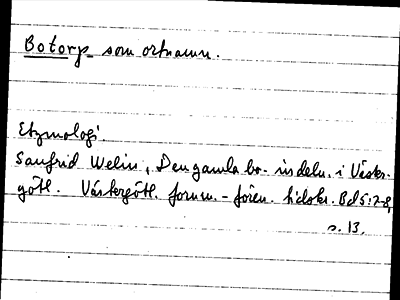 Botorp som ortnamn.
Etymologi.
Sanfrid Welin, Den gamla bo-indeln. i Väster-
götl. Västergötl. fornm.-fören. tidskr. Bd 5:7-8,
s. 13.